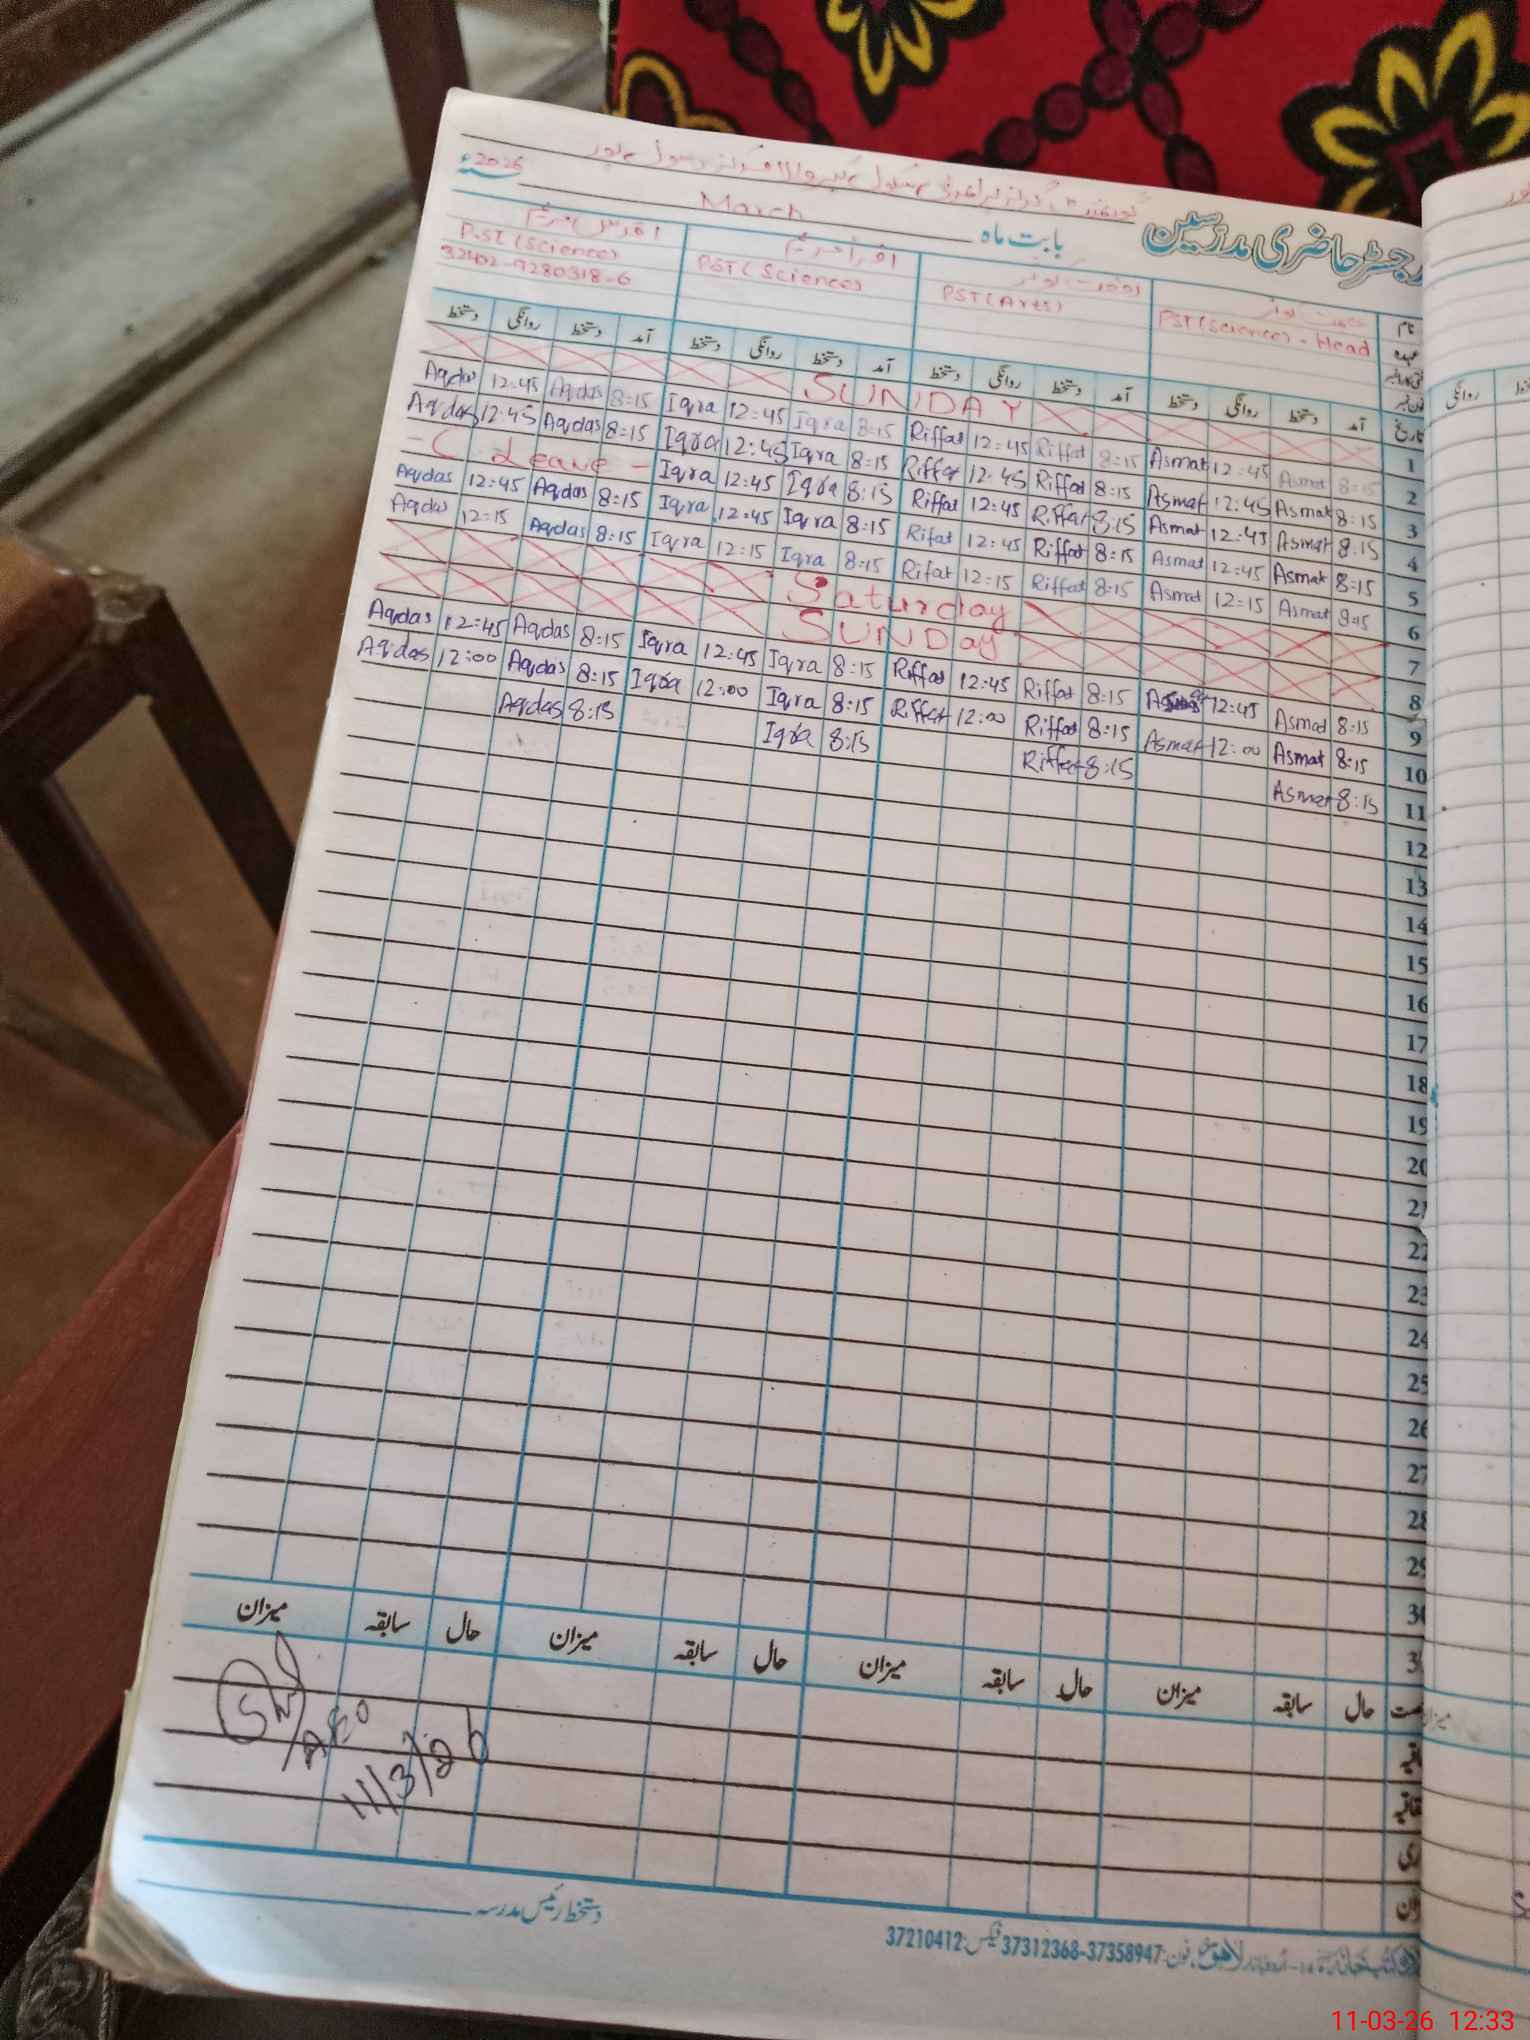 رجسٹر حاضری مدرسین
بابت ماہ March 2026
نام
PST (Science) - Head
PST (Arts)
PST (Science)
P.ST (Science)
32402-9280318-6
تاریخ آمد دستخط روانگی دستخط آمد دستخط روانگی دستخط آمد دستخط روانگی دستخط آمد دستخط روانگی دستخط
1 SUNDAY
2 8:15 Asmat 12:45 Asmat 8:15 Riffat 12:45 Riffat 8:15 Iqra 12:45 Iqra 8:15 Aqdas 12:45 Aqdas
3 8:15 Asmat 12:45 Asmat 8:15 Riffat 12:45 Riffat 8:15 Iqra 12:45 Iqra 8:15 Aqdas 12:45 Aqdas
4 8:15 Asmat 12:45 Asmat 8:15 Riffat 12:45 Riffat 8:15 Iqra 12:45 Iqra - C Leave -
5 8:15 Asmat 12:45 Asmat 8:15 Riffat 12:45 Rifat 8:15 Iqra 12:45 Iqra 8:15 Aqdas 12:45 Aqdas
6 8:15 Asmat 12:15 Asmat 8:15 Riffat 12:15 Rifat 8:15 Iqra 12:15 Iqra 8:15 Aqdas 12:15 Aqdas
7 Saturday
8 SUNDay
9 8:15 Asmat 12:45 8:15 Riffat 12:45 Riffat 8:15 Iqra 12:45 Iqra 8:15 Aqdas 12:45 Aqdas
10 8:15 Asmat 12:00 Asmat 8:15 Riffat 12:00 Riffat 8:15 Iqra 12:00 Iqra 8:15 Aqdas 12:00 Aqdas
11 8:15 Asmat 8:15 Riffat 8:15 Iqra 8:15 Aqdas
12
13
14
15
16
17
18
19
20
21
22
23
24
25
26
27
28
29
30
حال سابقہ میزان حال سابقہ میزان حال سابقہ میزان حال سابقہ میزان
AEO
11/3/26
دستخط رئیس مدرسہ
لاہور فون: 37358947-37312368 فیکس: 37210412
روانگی
میزان
11-03-26 12:33